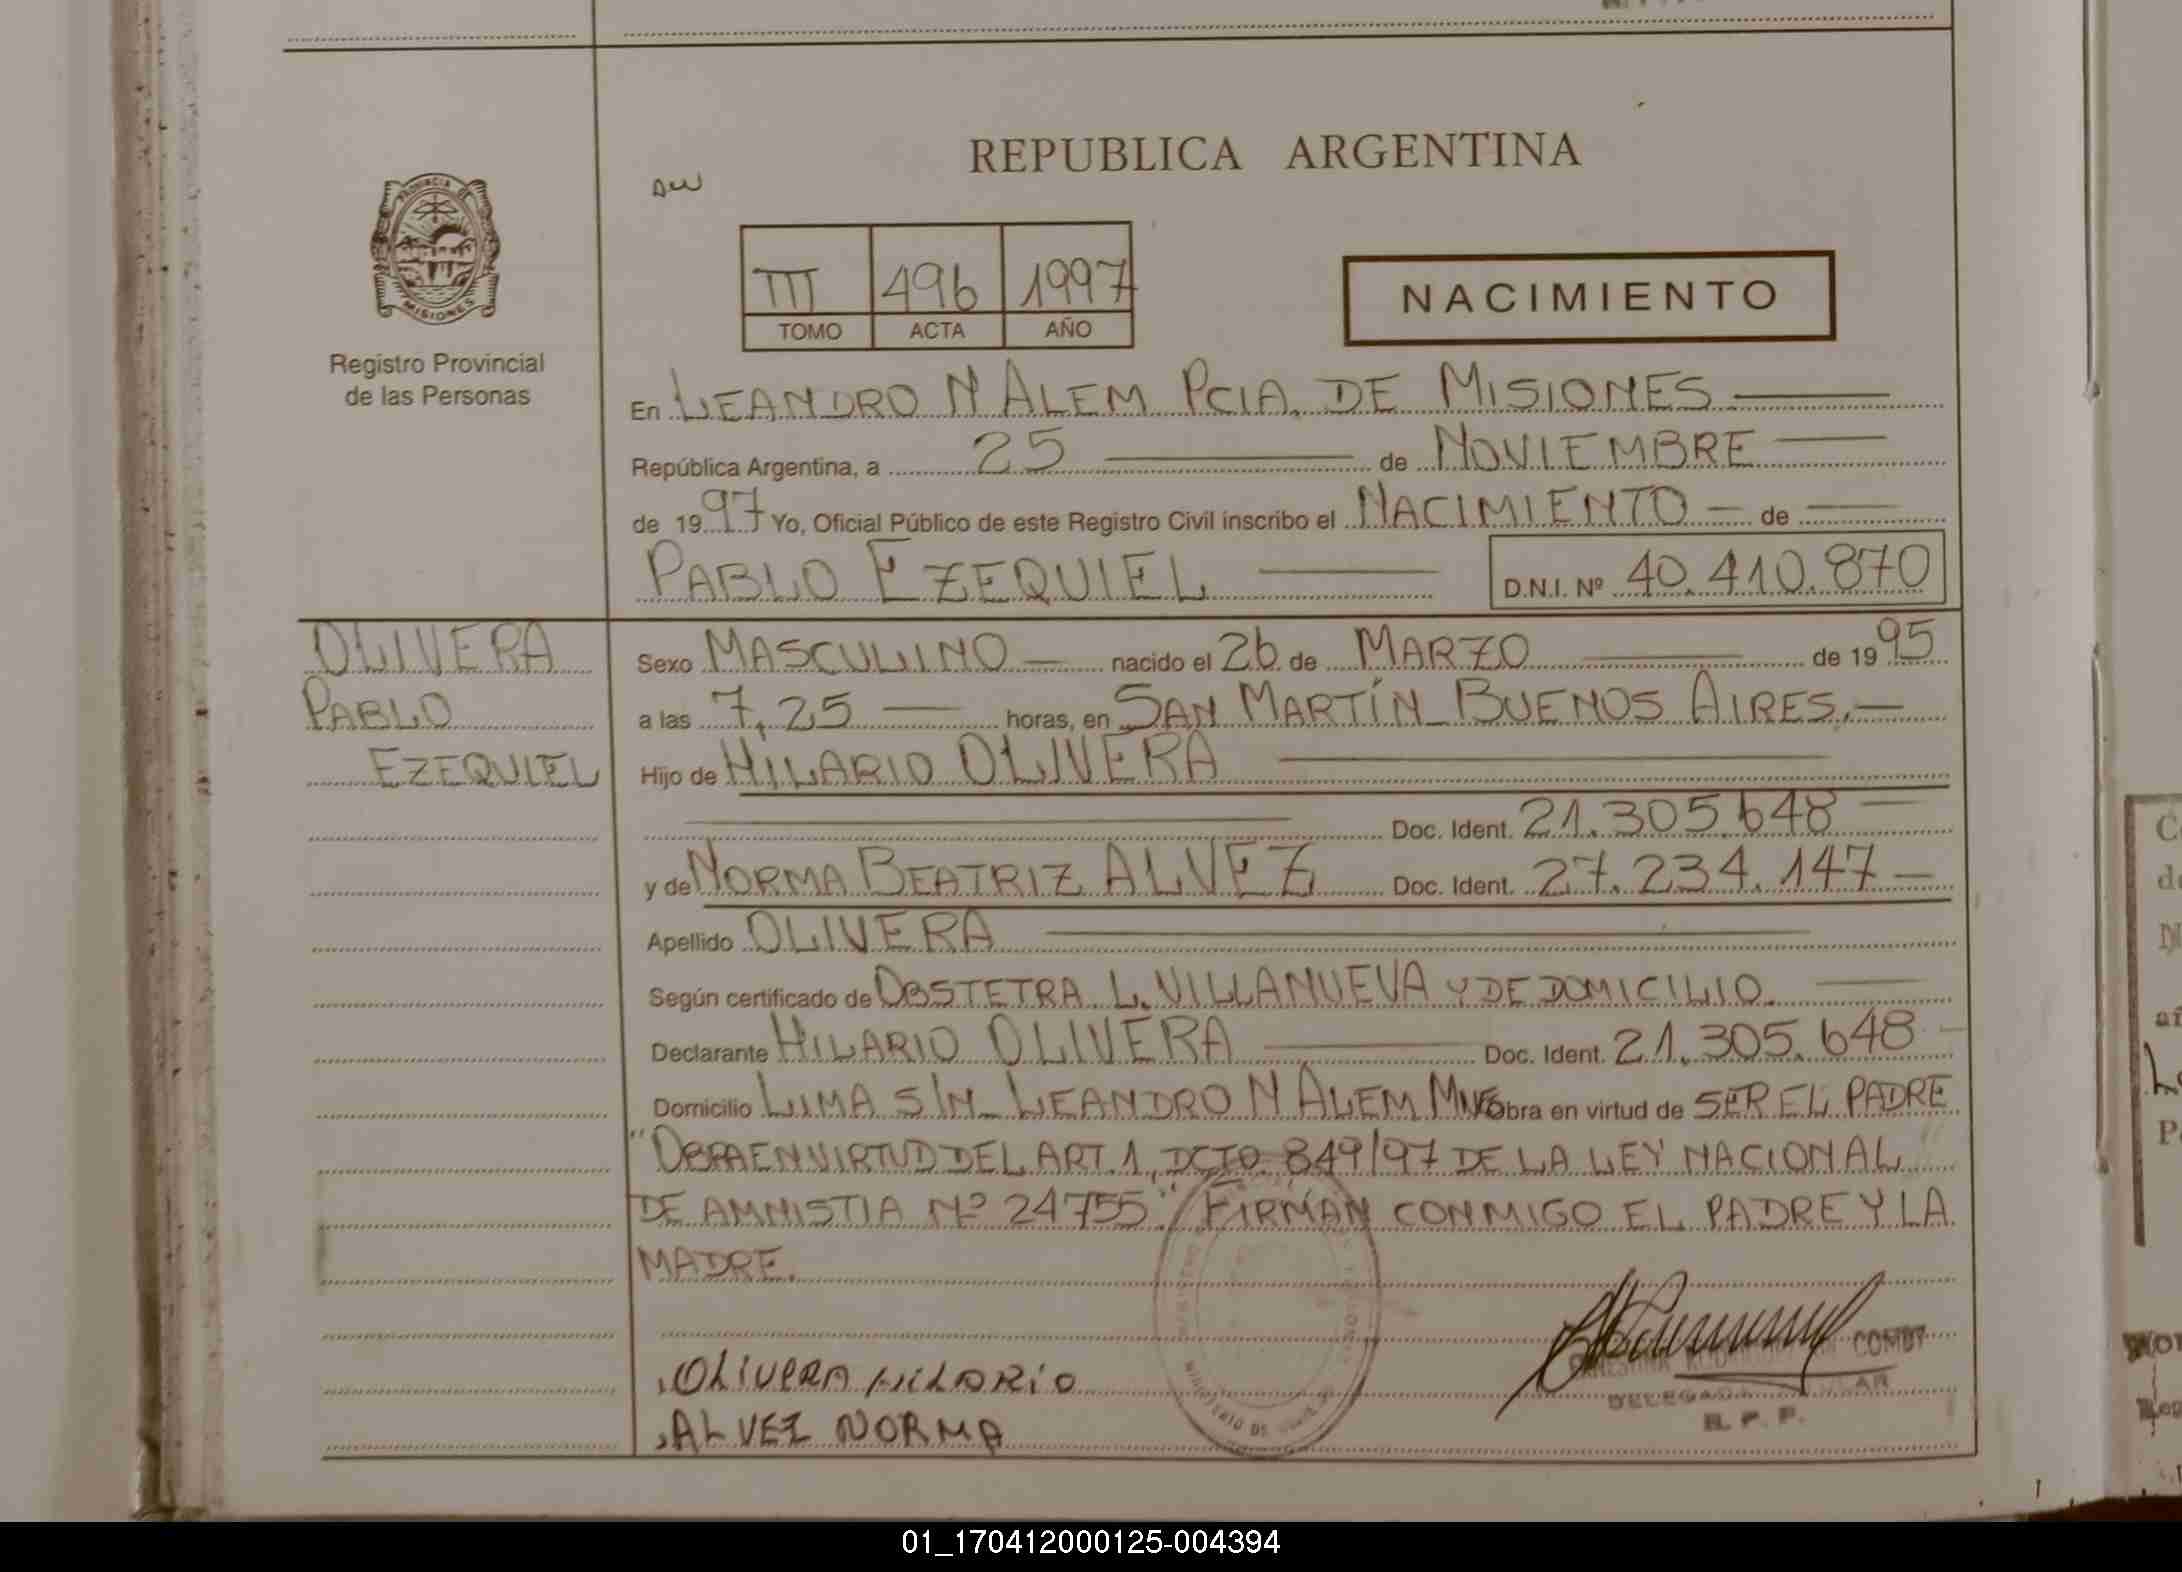 REPUBLICA ARGENTINA
PROVINCIA DE
MISIONES
Registro Provincial
de las Personas
III 496 1997
TOMO ACTA AÑO
NACIMIENTO
En LEANDRO N ALEM PCIA. DE MISIONES
República Argentina, a 25 de NOVIEMBRE
de 1997 Yo, Oficial Público de este Registro Civil inscribo el NACIMIENTO de
PABLO EZEQUIEL D.N.I. Nº 40.410.870
OLIVERA
PABLO
EZEQUIEL
Sexo MASCULINO nacido el 26 de MARZO de 1995
a las 7,25 horas, en SAN MARTÍN BUENOS AIRES.
Hijo de HILARIO OLIVERA
Doc. Ident. 21.305.648
y de NORMA BEATRIZ ALVEZ Doc. Ident. 27.234.147
Apellido OLIVERA
Según certificado de OBSTETRA L. VILLANUEVA Y DE DOMICILIO.
Declarante HILARIO OLIVERA Doc. Ident. 21.305.648
Domicilio LIMA S/N LEANDRO N ALEM obra en virtud de SER EL PADRE
"OBRA EN VIRTUD DEL ART. 1, DCTO. 849/97 DE LA LEY NACIONAL
DE AMNISTIA Nº 24755." FIRMAN CONMIGO EL PADRE Y LA
MADRE.
OLIVERA HILARIO
ALVEZ NORMA
MINISTERIO DE
R. P. P.
01_170412000125-004394